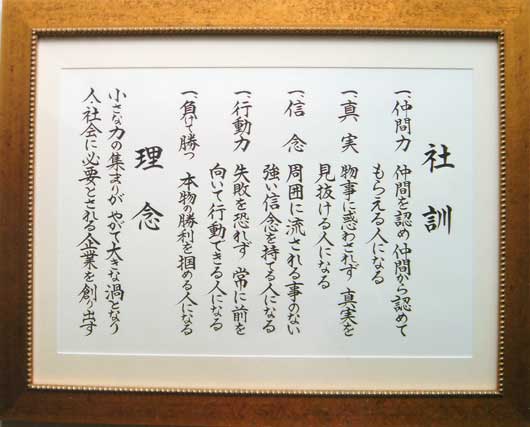 社訓
一、仲間力 仲間を認め 仲間から認めて
もらえる人になる
一、真実 物事に惑わされず 真実を
見抜ける人になる
一、信念 周囲に流される事のない
強い信念を持てる人になる
一、行動力 失敗を恐れず 常に前を
向いて行動できる人になる
一、負けて勝つ 本物の勝利を掴める人になる
理念
小さな力の集まりが やがて大きな渦となり
人・社会に必要とされる企業を創り出す